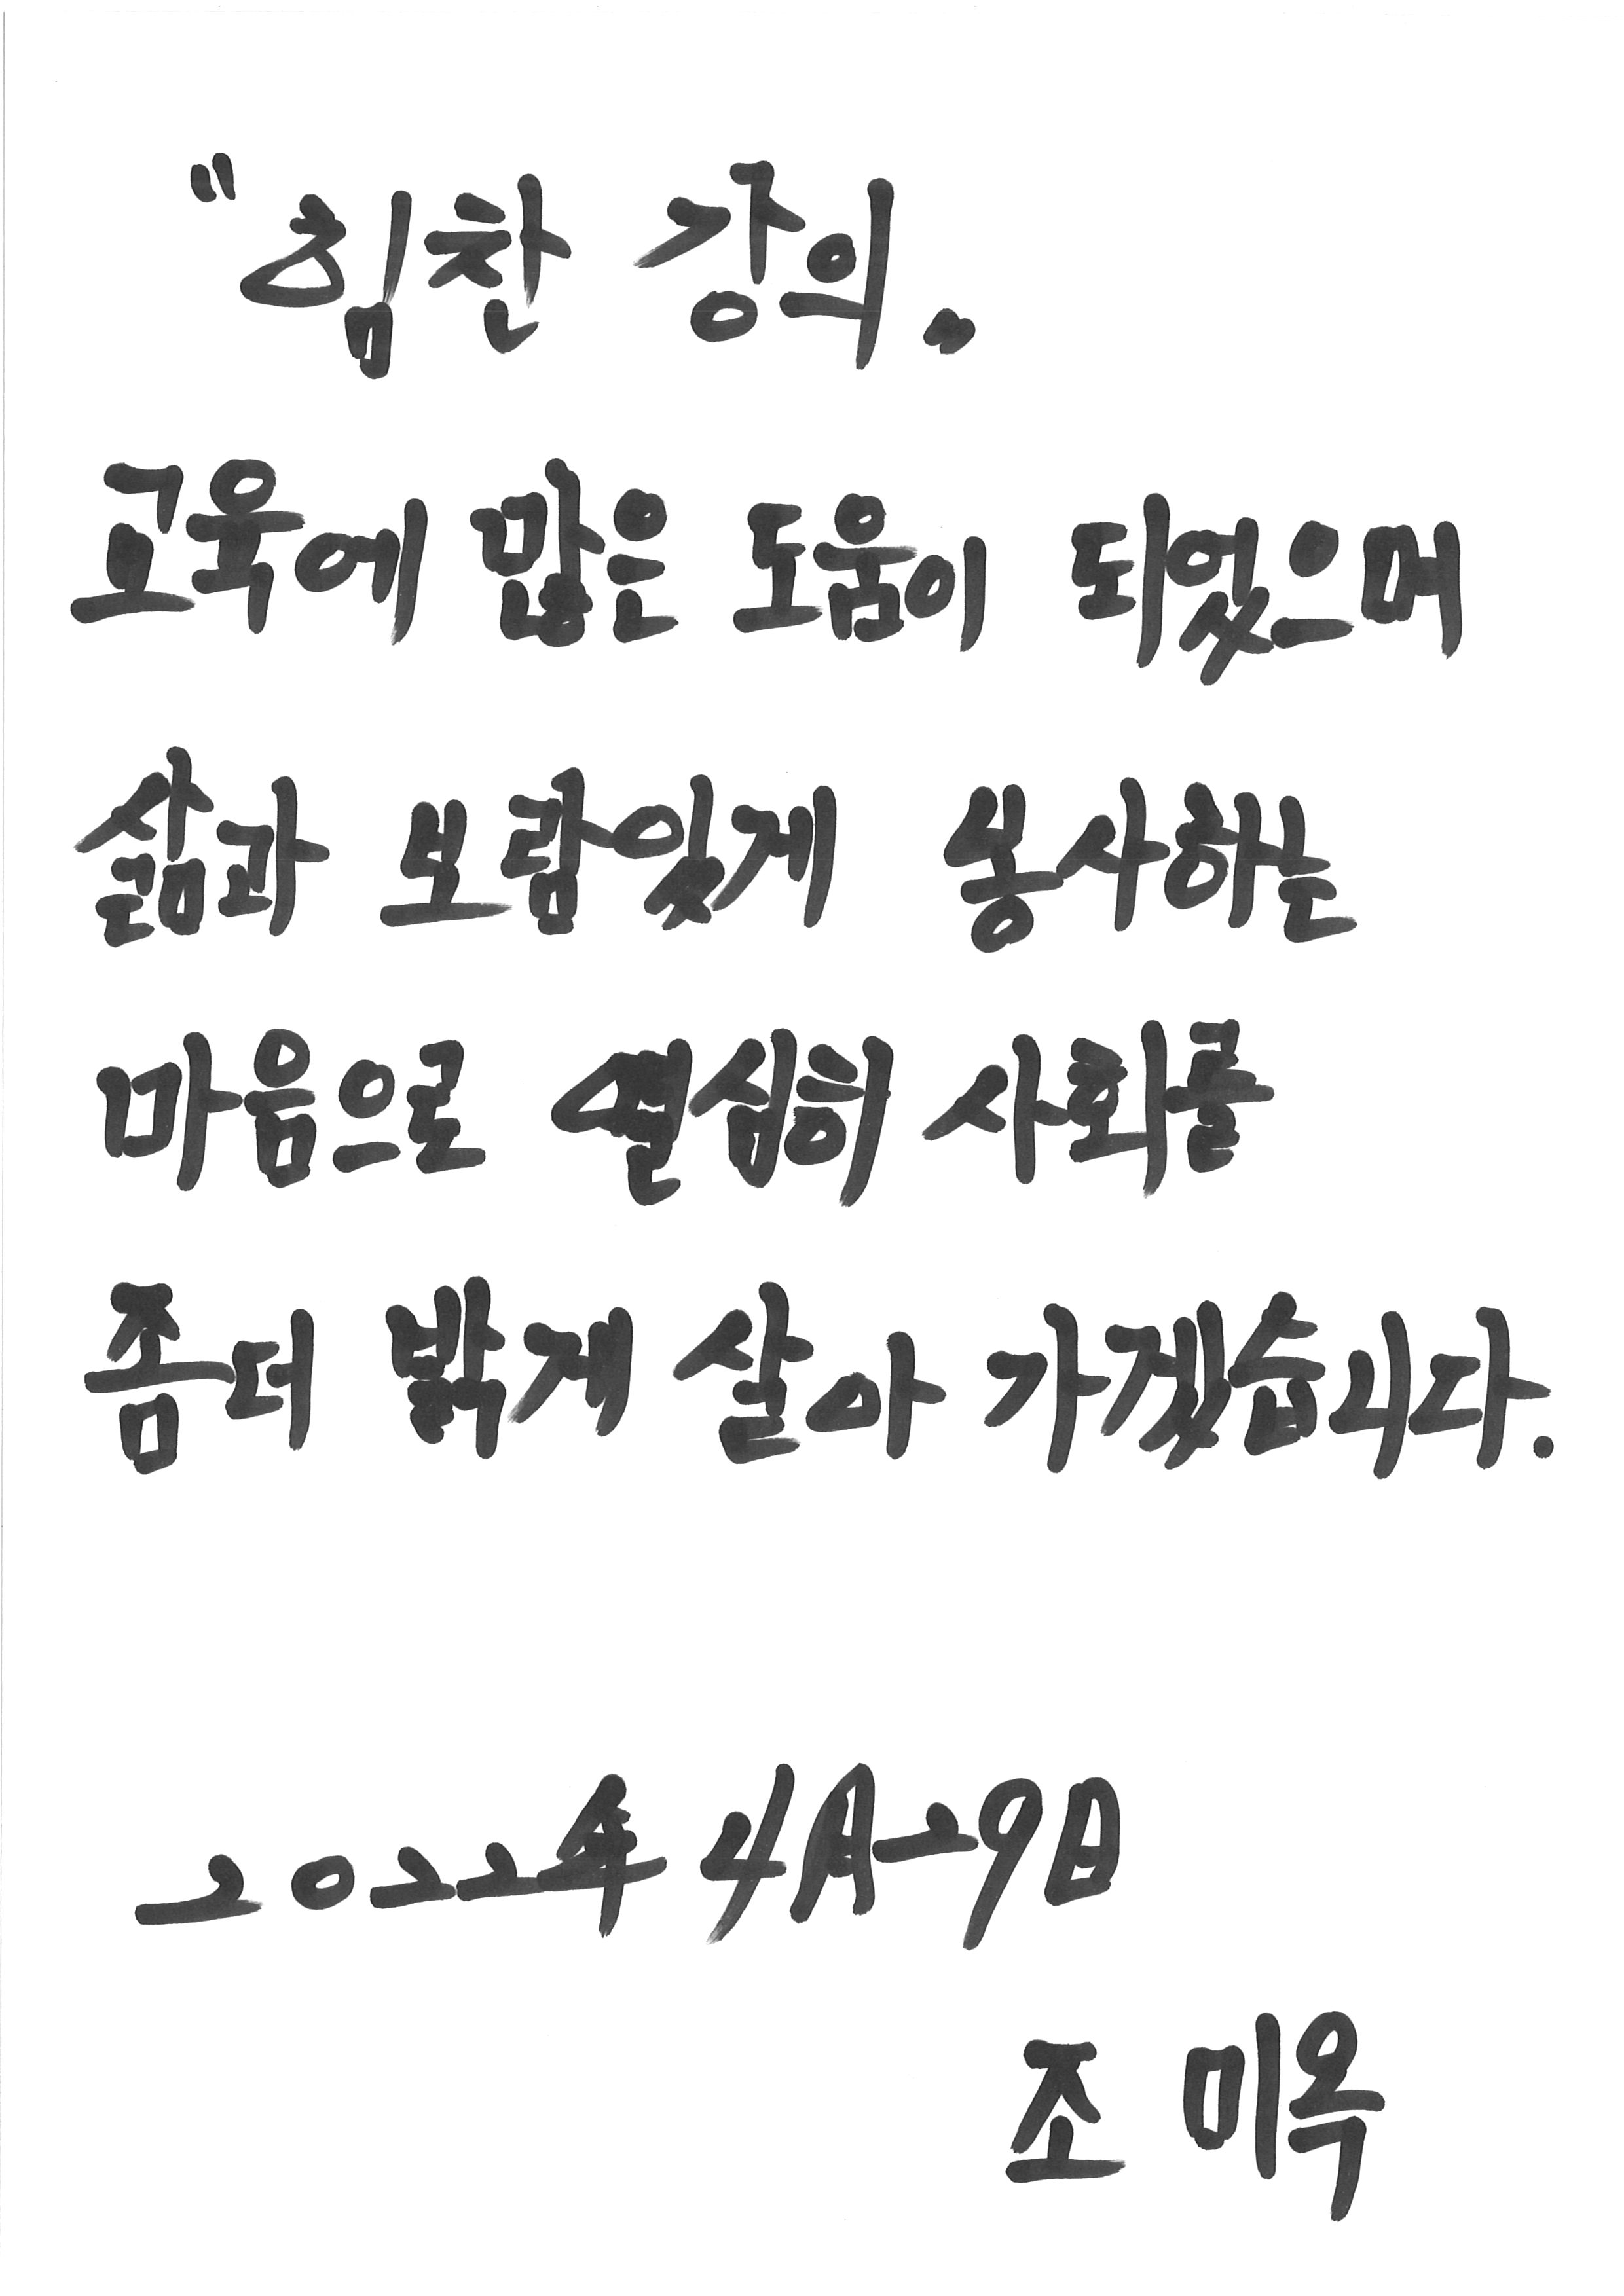 "힘찬 강의"
교육에 많은 도움이 되었으며
삶과 보람있게 봉사하는
마음으로 열심히 사회를
좀더 밝게 살아 가겠습니다.
2022年 4月 29日
조 미옥